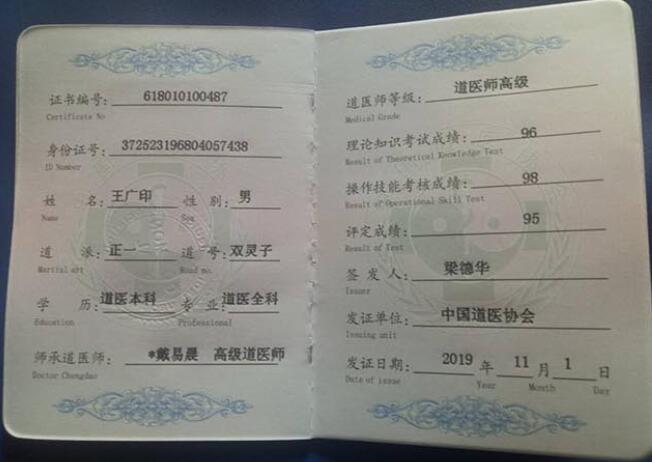 证书编号: 618010100487
Certificate No
身份证号: 372523196804057438
ID Number
姓 名: 王广印 性 别: 男
Name Sex
道 派: 正一 道 号: 双灵子
Martial art Road no.
学 历: 道医本科 专 业: 道医全科
Education Professional
师承道医师: *戴易晟 高级道医师
Doctor Chengdao
道医师等级: 道医师高级
Medical Grade
理论知识考试成绩: 96
Result of Theoretical Knowledge Test
操作技能考核成绩: 98
Result of Operational Skill Test
评定成绩: 95
Result of Test
签 发 人: 梁德华
Issuer
发证单位: 中国道医协会
Issuing unit
发证日期: 2019 年 11 月 1 日
Date of issue Year Month Day